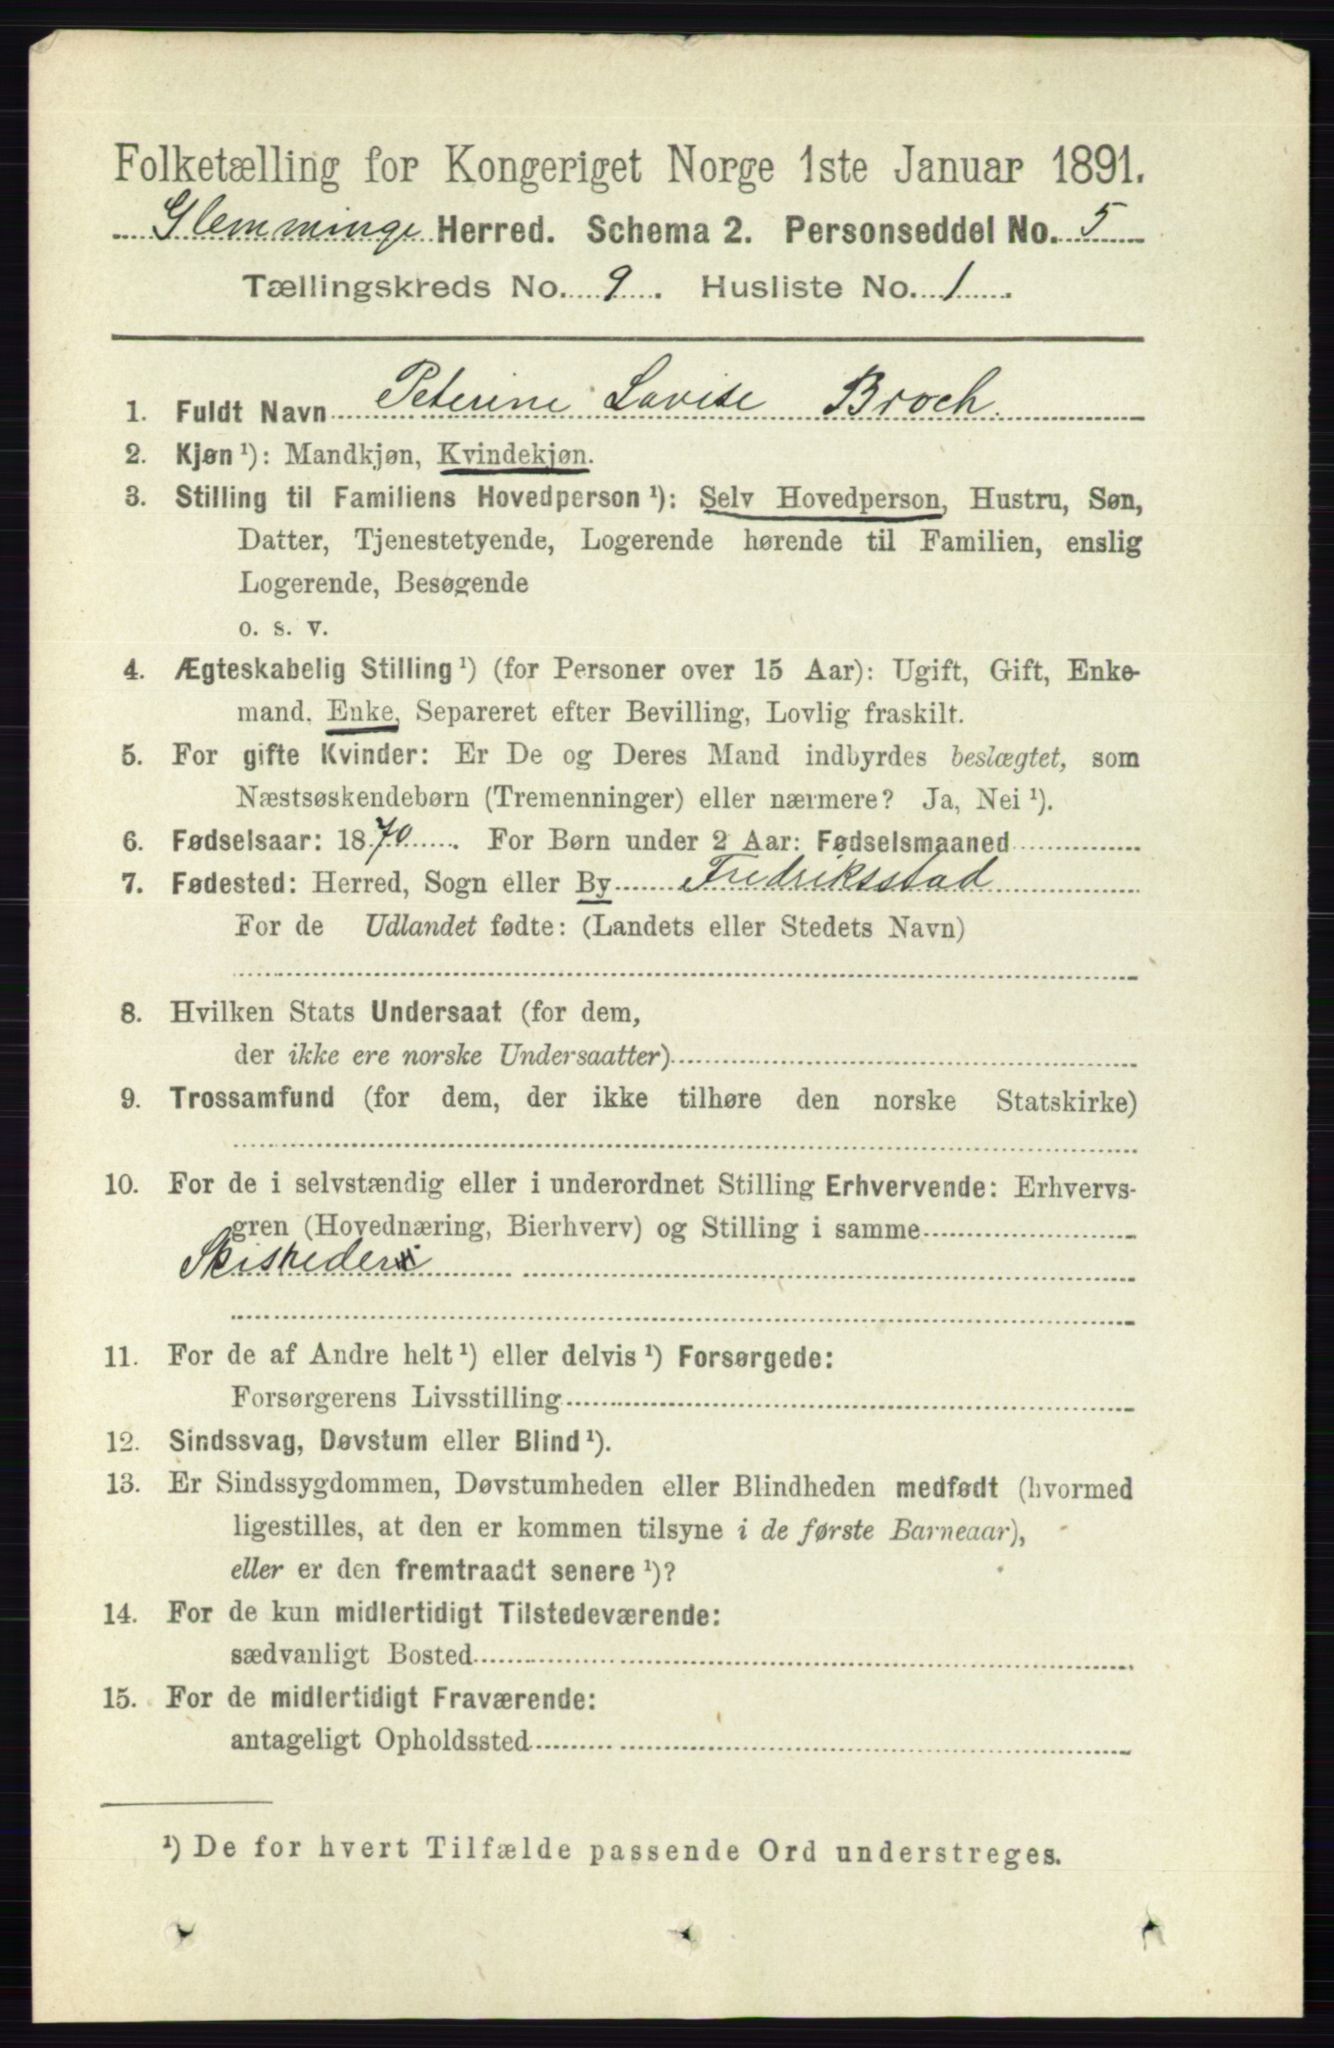 Folketælling for Kongeriget Norge 1ste Januar 1891.
Glemminge Herred. Schema 2. Personseddel No. 5
Tællingskreds No. 9. Husliste No. 1.
1. Fuldt Navn Peterine Lovise Broch.
2. Kjøn ¹): Mandkjøn, Kvindekjøn.
3. Stilling til Familiens Hovedperson ¹): Selv Hovedperson, Hustru, Søn,
Datter, Tjenestetyende, Logerende hørende til Familien, enslig
Logerende, Besøgende
o. s. v.
4. Ægteskabelig Stilling ¹) (for Personer over 15 Aar): Ugift, Gift, Enke-
mand, Enke, Separeret efter Bevilling, Lovlig fraskilt.
5. For gifte Kvinder: Er De og Deres Mand indbyrdes beslægtet, som
Næstsøskendebørn (Tremenninger) eller nærmere? Ja, Nei ¹).
6. Fødselsaar: 1870. For Børn under 2 Aar: Fødselsmaaned
7. Fødested: Herred, Sogn eller By Fredriksstad
For de Udlandet fødte: (Landets eller Stedets Navn)
8. Hvilken Stats Undersaat (for dem,
der ikke ere norske Undersaatter)
9. Trossamfund (for dem, der ikke tilhøre den norske Statskirke)
10. For de i selvstændig eller i underordnet Stilling Erhvervende: Erhvervs-
gren (Hovednæring, Bierhverv) og Stilling i samme
11. For de af Andre helt ¹) eller delvis ¹) Forsørgede:
Forsørgerens Livsstilling
12. Sindssvag, Døvstum eller Blind ¹).
13. Er Sindssygdommen, Døvstumheden eller Blindheden medfødt (hvormed
ligestilles, at den er kommen tilsyne i de første Barneaar),
eller er den fremtraadt senere ¹)?
14. For de kun midlertidigt Tilstedeværende:
sædvanligt Bosted
15. For de midlertidigt Fraværende:
antageligt Opholdssted
¹) De for hvert Tilfælde passende Ord understreges.